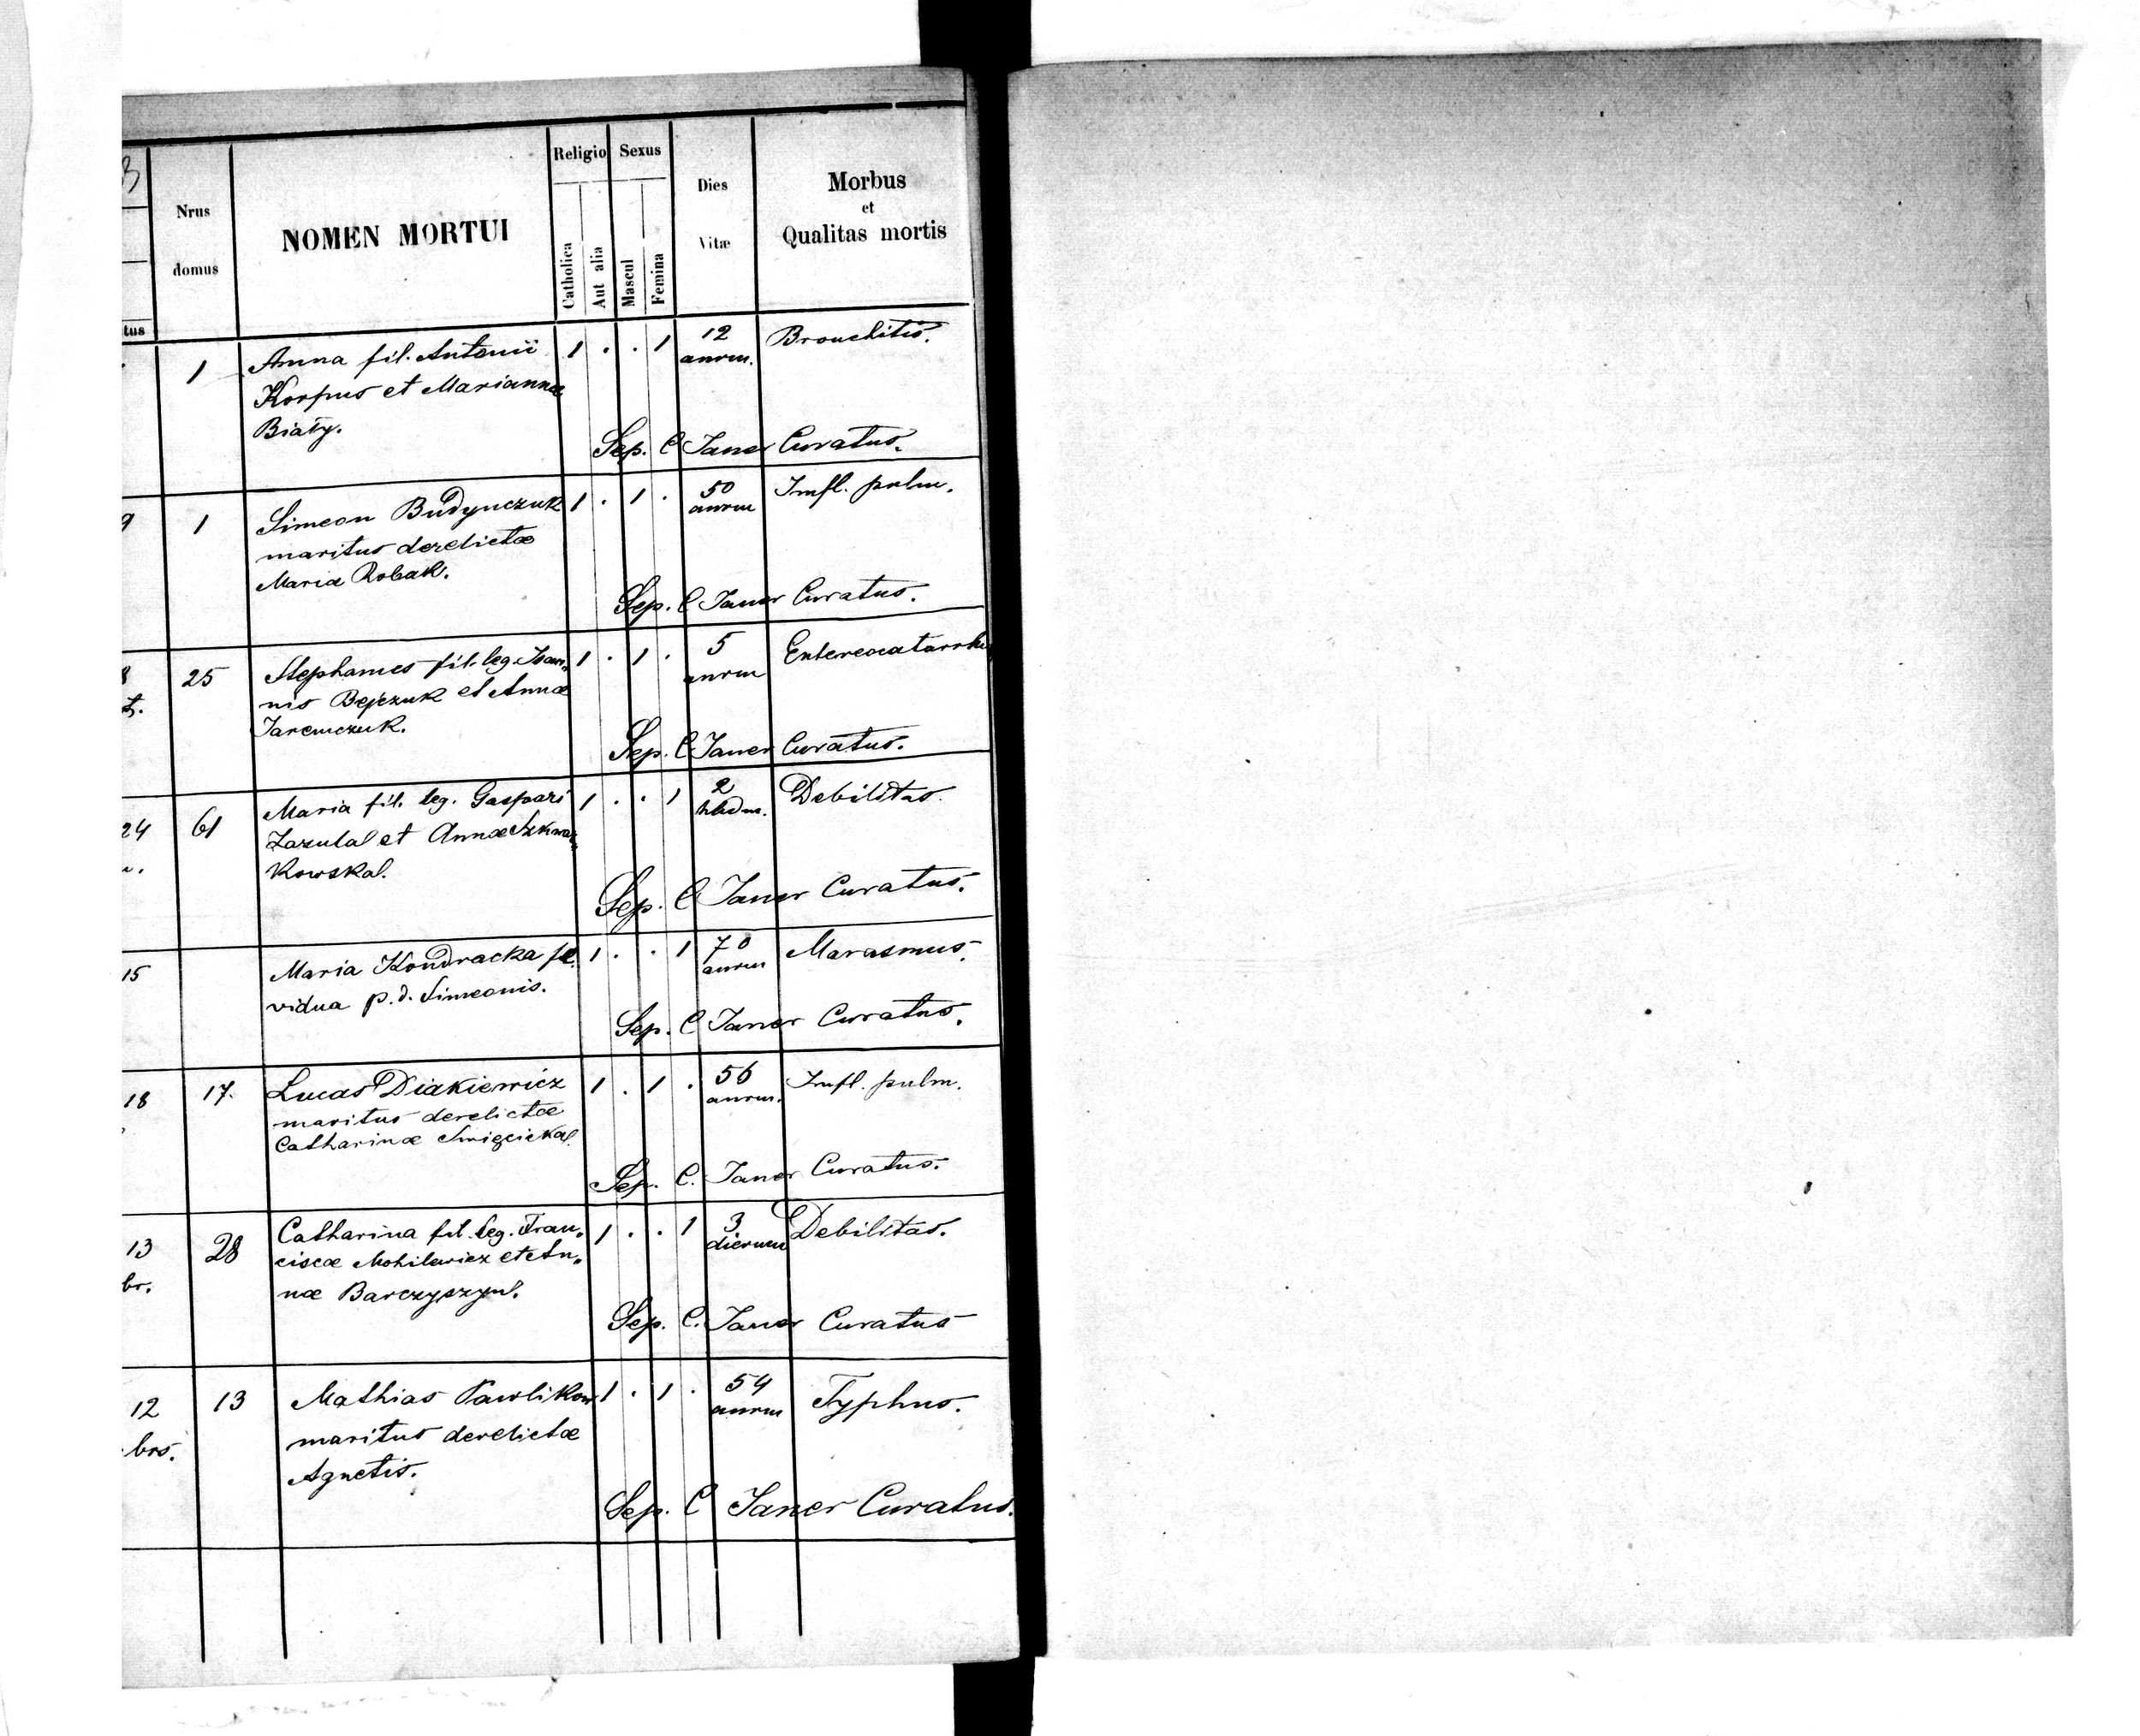 3
Nrus
domus
NOMEN MORTUI
Religio
Catholica
Aut alia
Sexus
Mascul
Femina
Dies
Vitæ
Morbus
et
Qualitas mortis
tus
1 Anna fil. Antonii 1 . . 1 12 Bronchitis.
Korpus et Mariannæ annm.
Biały.
Sep. C Janer Curatus.
9 1 Simeon Budynczuk 1 . 1 . 50 Infl. pulm.
maritus derelictæ annm
Mariæ Robak.
Sep. C Janer Curatus.
8 25 Stephanus fil. leg. Joan„ 1 . 1 . 5
t. nis Bejczuk et Annæ annm
Jaremczuk.
Sep. C Janer Curatus.
24 61 Maria fil. leg. Gaspari 1 . . 1 2 Debilitas.
Zazula et Annæ hbdm.
kowska.
Sep. C Janer Curatus.
15 Maria Kondracka 1 . . 1 70 Marasmus.
vidua p. d. Simeonis. annm
Sep. C Janer Curatus.
18 17. Lucas Diakiewicz 1 . 1 . 56 Infl. pulm.
maritus derelictæ annm.
Catharinæ
Sep. C. Janer Curatus.
13 28 Catharina fil. leg. Fran„ 1 . . 1 3 Debilitas.
br. ciscæ Mohilewicz et An„ dierum
næ Barczyszyn.
Sep. C. Janer Curatus
12 13 Mathias Pawlikow 1 . 1 . 54 Typhus.
bris. maritus derelictæ annm
Agnetis.
Sep. C Janer Curatus.